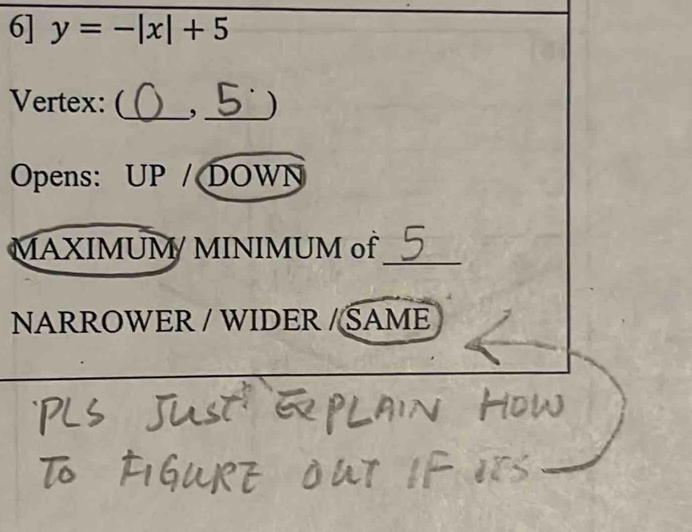 6] y = -|x| + 5
Vertex: (0, 5)
Opens: UP / DOWN
MAXIMUM / MINIMUM of 5
NARROWER / WIDER / SAME
PLS JUST EXPLAIN HOW
TO FIGURE OUT IF ITS